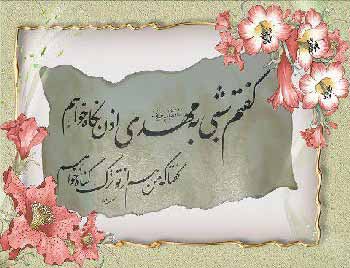 گفتم شبی به مهدی اذن نگاه خواهم
گفتا که من هم از تو ترک گناه خواهم